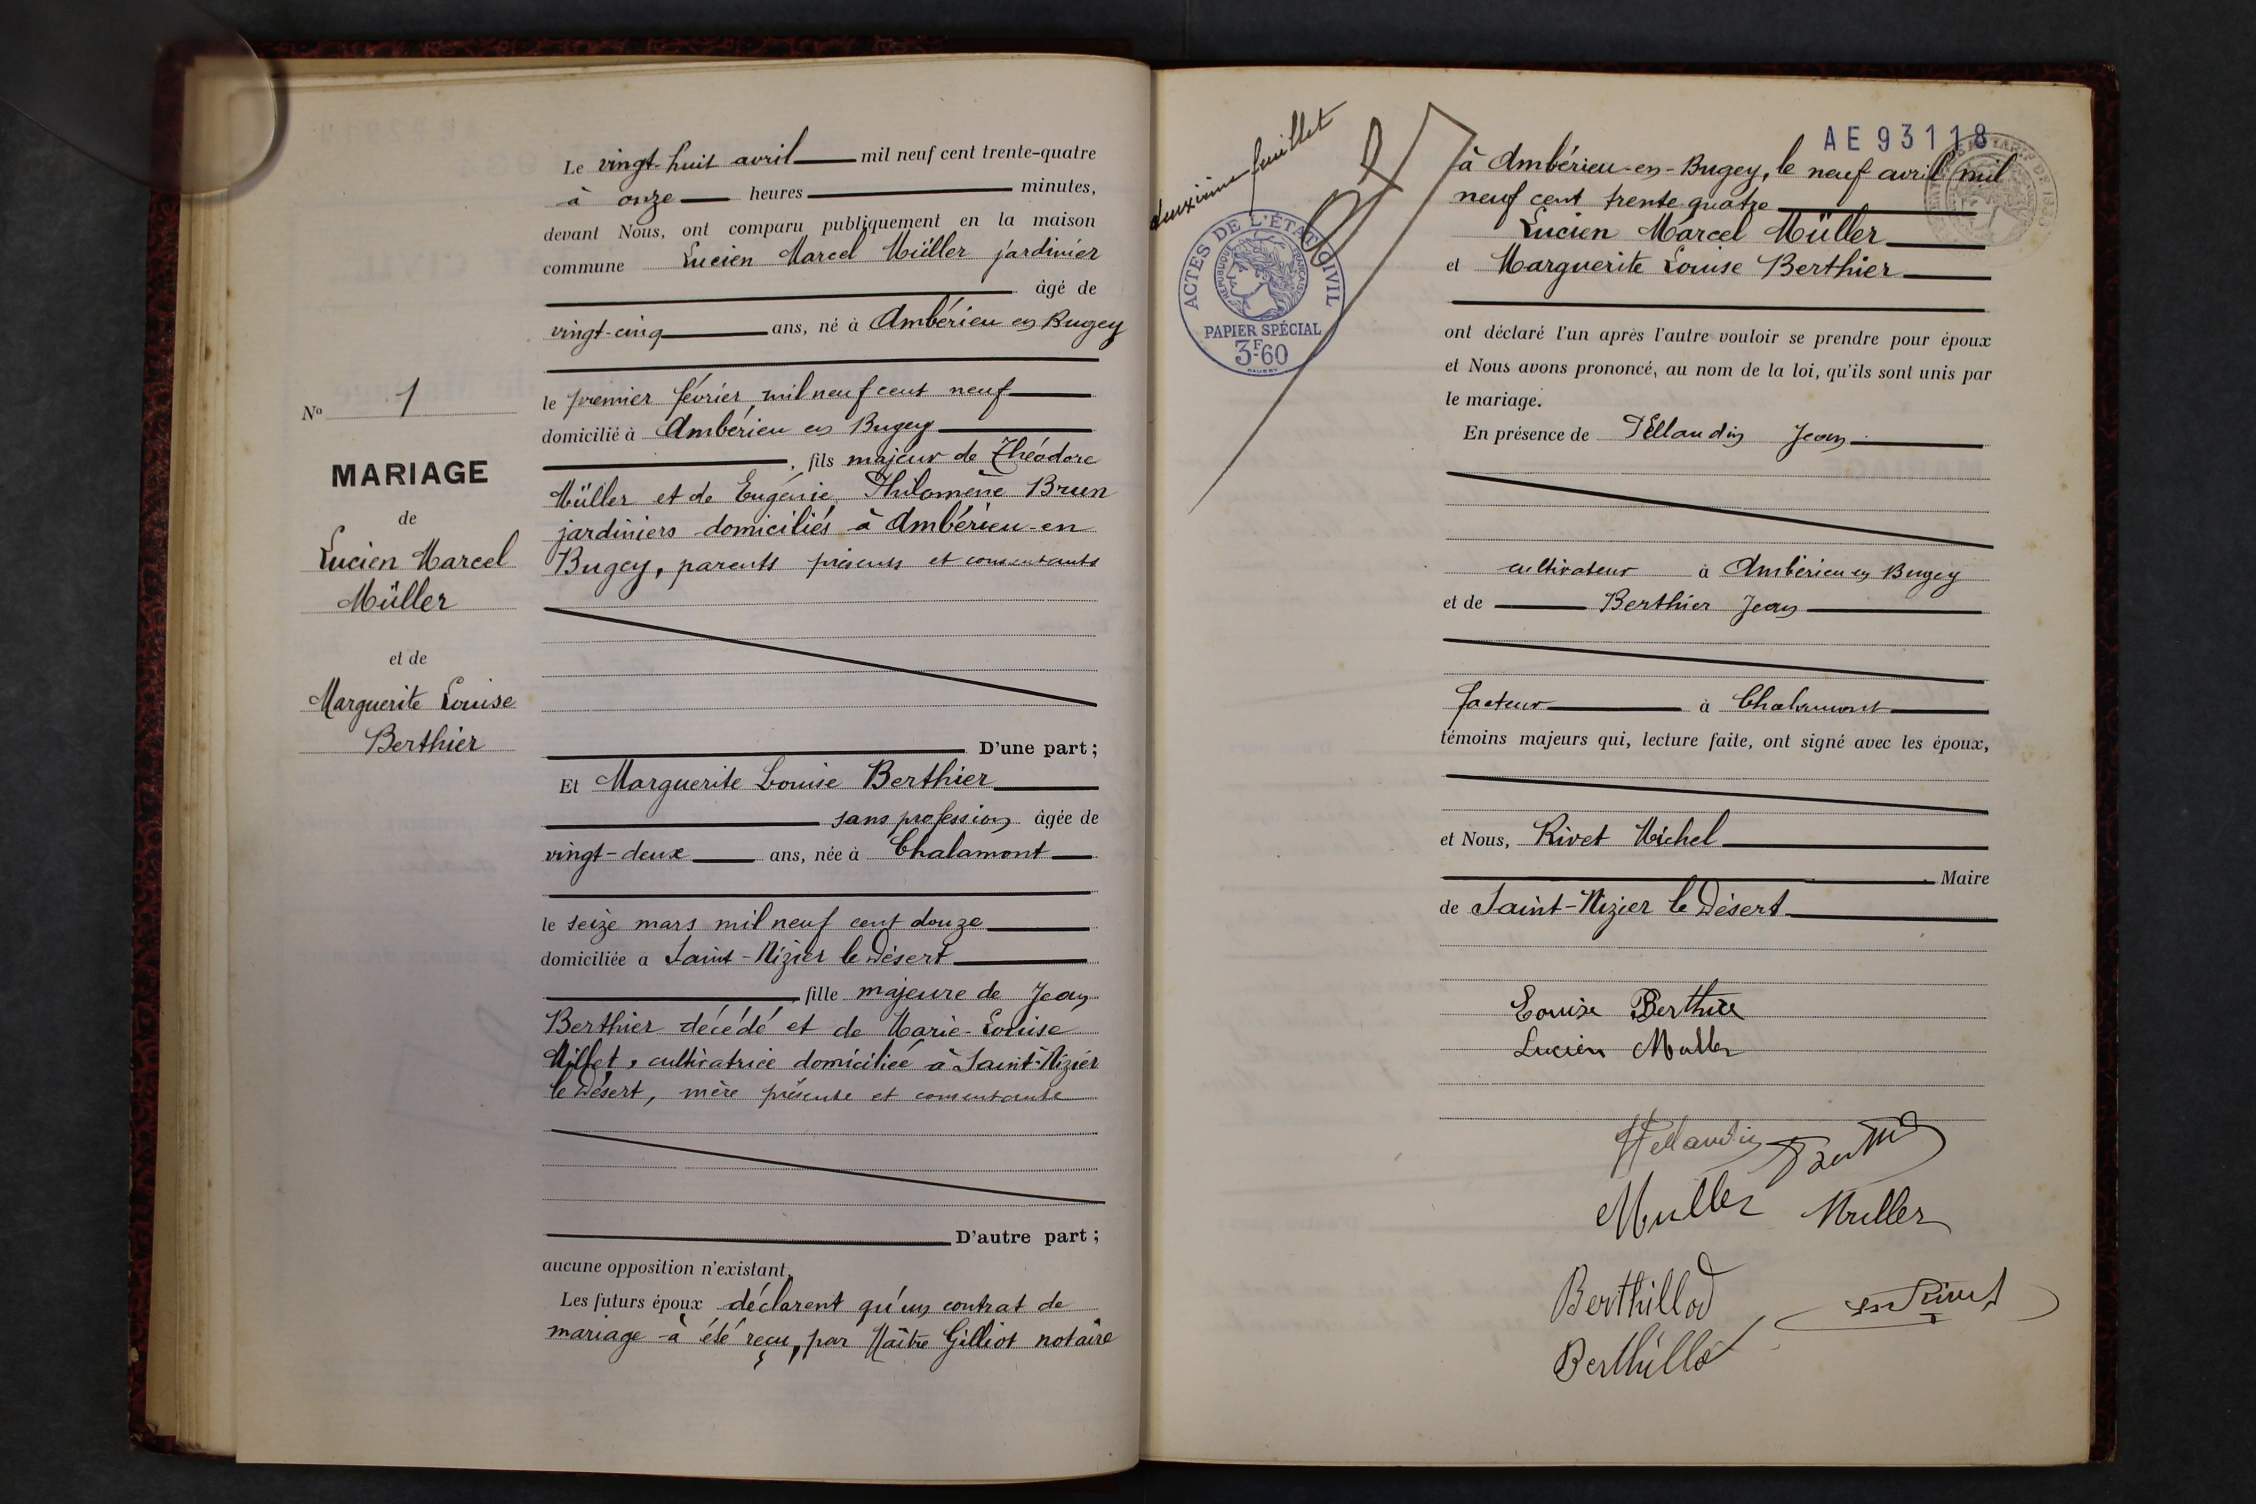 Le vingt-huit avril mil neuf cent trente-quatre
à onze heures minutes,
devant Nous, ont comparu publiquement en la maison
commune Lucien Marcel Müller jardinier
âgé de
vingt-cinq ans, né à Ambérieu en Bugey
le premier février mil neuf cent neuf
domicilié à Ambérieu en Bugey
, fils majeur de Théodore
Müller et de Eugénie Philomène Brun
jardiniers domiciliés à Ambérieu-en
Bugey, parents présents et consentants
D'une part ;
Et Marguerite Louise Berthier
sans profession âgée de
vingt-deux ans, née à Chalamont
le seize mars mil neuf cent douze
domiciliée a Saint-Nizier le Désert
fille majeure de Jean
Berthier décédé et de Marie-Louise
Millet, cultivatrice domiciliée à Saint-Nizier
le Désert, mère présente et consentante
D'autre part ;
aucune opposition n'existant,
Les futurs époux déclarent qu'un contrat de
mariage à été reçu, par Maître Gilliot notaire
No 1
MARIAGE
de
Lucien Marcel
Müller
et de
Marguerite Louise
Berthier
deuxième feuillet
ACTES DE L'ÉTAT CIVIL
RÉPUBLIQUE FRANÇAISE
PAPIER SPÉCIAL
3F.60
AE 93118
à Ambérieu-en-Bugey, le neuf avril mil
neuf cent trente quatre
Lucien Marcel Müller
et Marguerite Louise Berthier
ont déclaré l'un après l'autre vouloir se prendre pour époux
et Nous avons prononcé, au nom de la loi, qu'ils sont unis par
le mariage.
En présence de Jean
cultivateur à Ambérieu en Bugey
et de Berthier Jean
facteur à Chalamont
témoins majeurs qui, lecture faite, ont signé avec les époux,
et Nous, Rivet Michel
Maire
de Saint-Nizier le Désert
Louise Berthier
Lucien Muller
Muller Muller
Berthillod
Rivet
Berthillod